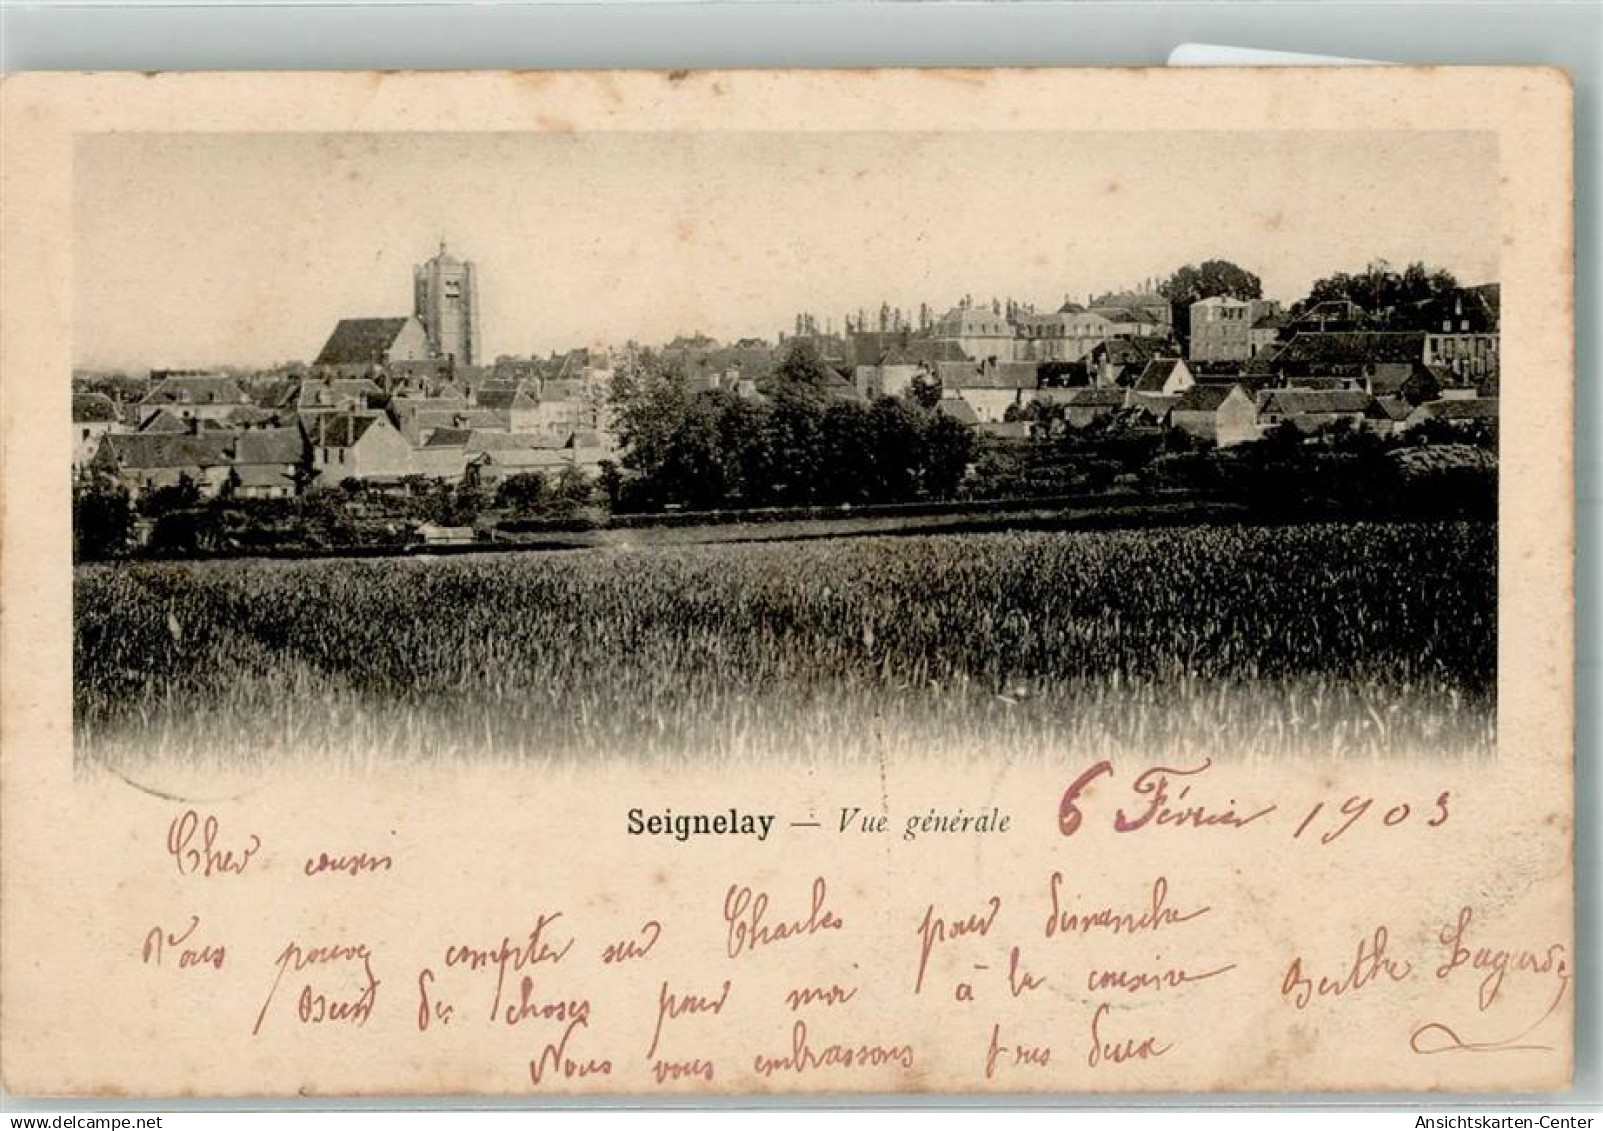 Seignelay — Vue générale
6 Février 1903
Cher cousin
Vous pouvez compter sur Charles pour dimanche
Bien des choses pour moi à la cousine
Nous vous embrassons tous deux
Berthe Lagarde
delcampe.net
Ansichtskarten-Center